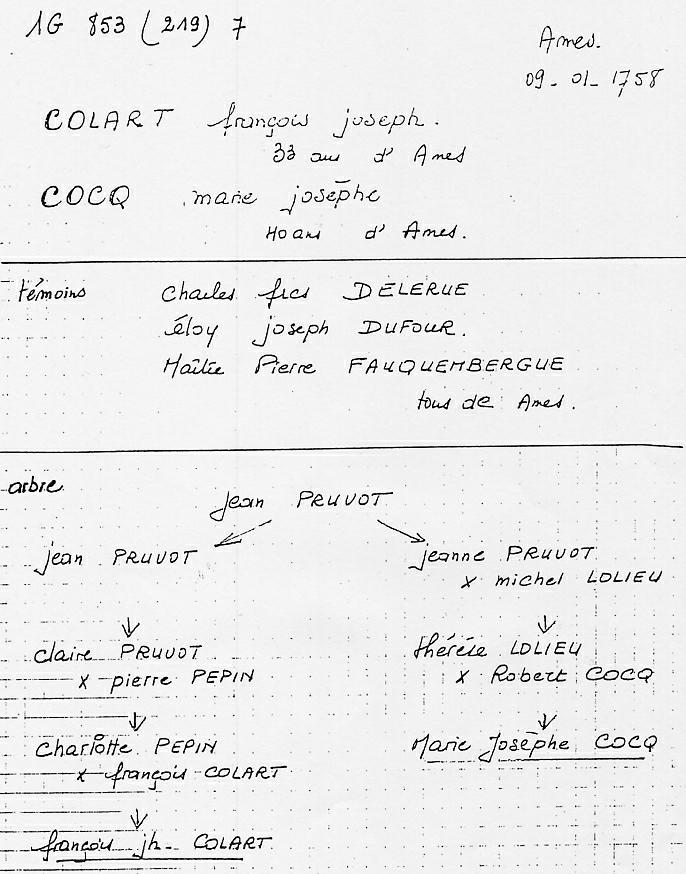 1G 853 (219) 7
Ames.
09-01-1758
COLART françois joseph.
33 ans d' Ames
COCQ marie josèphe
40 ans d' Ames.
témoins
Charles frcs DELERUE
éloy joseph DUFOUR.
Maître Pierre FAUQUEMBERGUE
tous de Ames.
arbre
jean PRUVOT
jean PRUVOT
jeanne PRUVOT
x michel LOLIEU
claire PRUVOT
x pierre PEPIN
thérése LOLIEU
x Robert COCQ
Charlotte PEPIN
x françois COLART
Marie Josèphe COCQ
françois jh. COLART